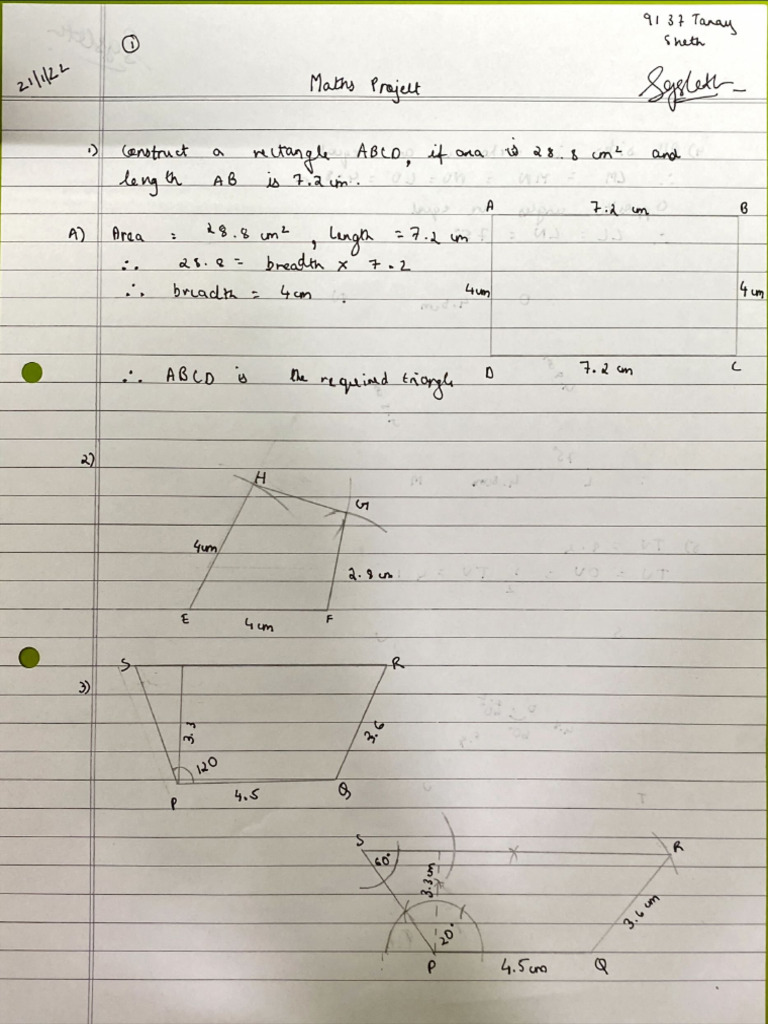 ①
9137 Tanay
Sheth
21/1/22
Maths Project
1) Construct a rectangle ABCD, if area is 28.8 cm² and
length AB is 7.2 cm.
A) Area = 28.8 cm², length = 7.2 cm
∴ 28.8 = breadth × 7.2
∴ breadth = 4cm
∴ ABCD is the required triangle
A 7.2 cm B
4cm 4cm
D 7.2 cm C
2)
H
G
4cm
2.8 cm
E F
4cm
3)
S R
3.3
3.6
120
P 4.5 Q
S R
60°
3.3 cm
3.6 cm
120°
P 4.5cm Q